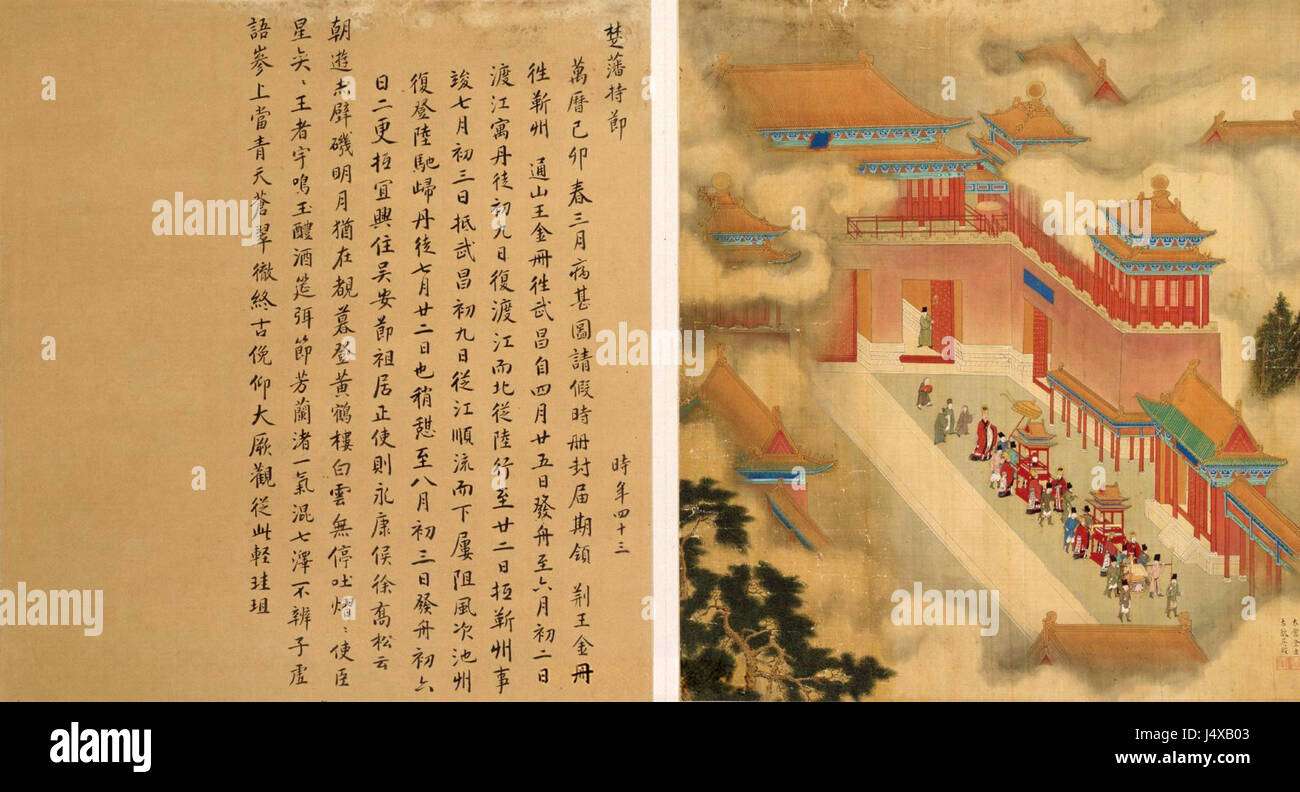 楚藩持節 時年四十三
萬曆己卯春三月病甚圖請假時册封届期領 荆王金冊
徃蘄州 通山王金冊徃武昌自四月廿五日發舟至六月初二日
渡江寓丹徒初九日復渡江而北從陸行至廿二日抵蘄州事
竣七月初三日抵武昌初九日從江順流而下屢阻風次池州
復登陸馳歸丹徒七月廿二日也稍憇至八月初三日發舟初六
日二更抵宜興住吳安節祖居正使則永康侯徐喬松云
朝遊赤壁磯明月猶在覩暮登黃鶴樓白雲無停吐熠〻使臣
星奕〻王者宇鳴玉醴酒筵弭節芳蘭渚一氣混七澤不辨子虛
語嵾上當青天蒼翠徹終古俛仰大厥觀從此輕珪珇
alamy
Image ID: J4XB03
www.alamy.com